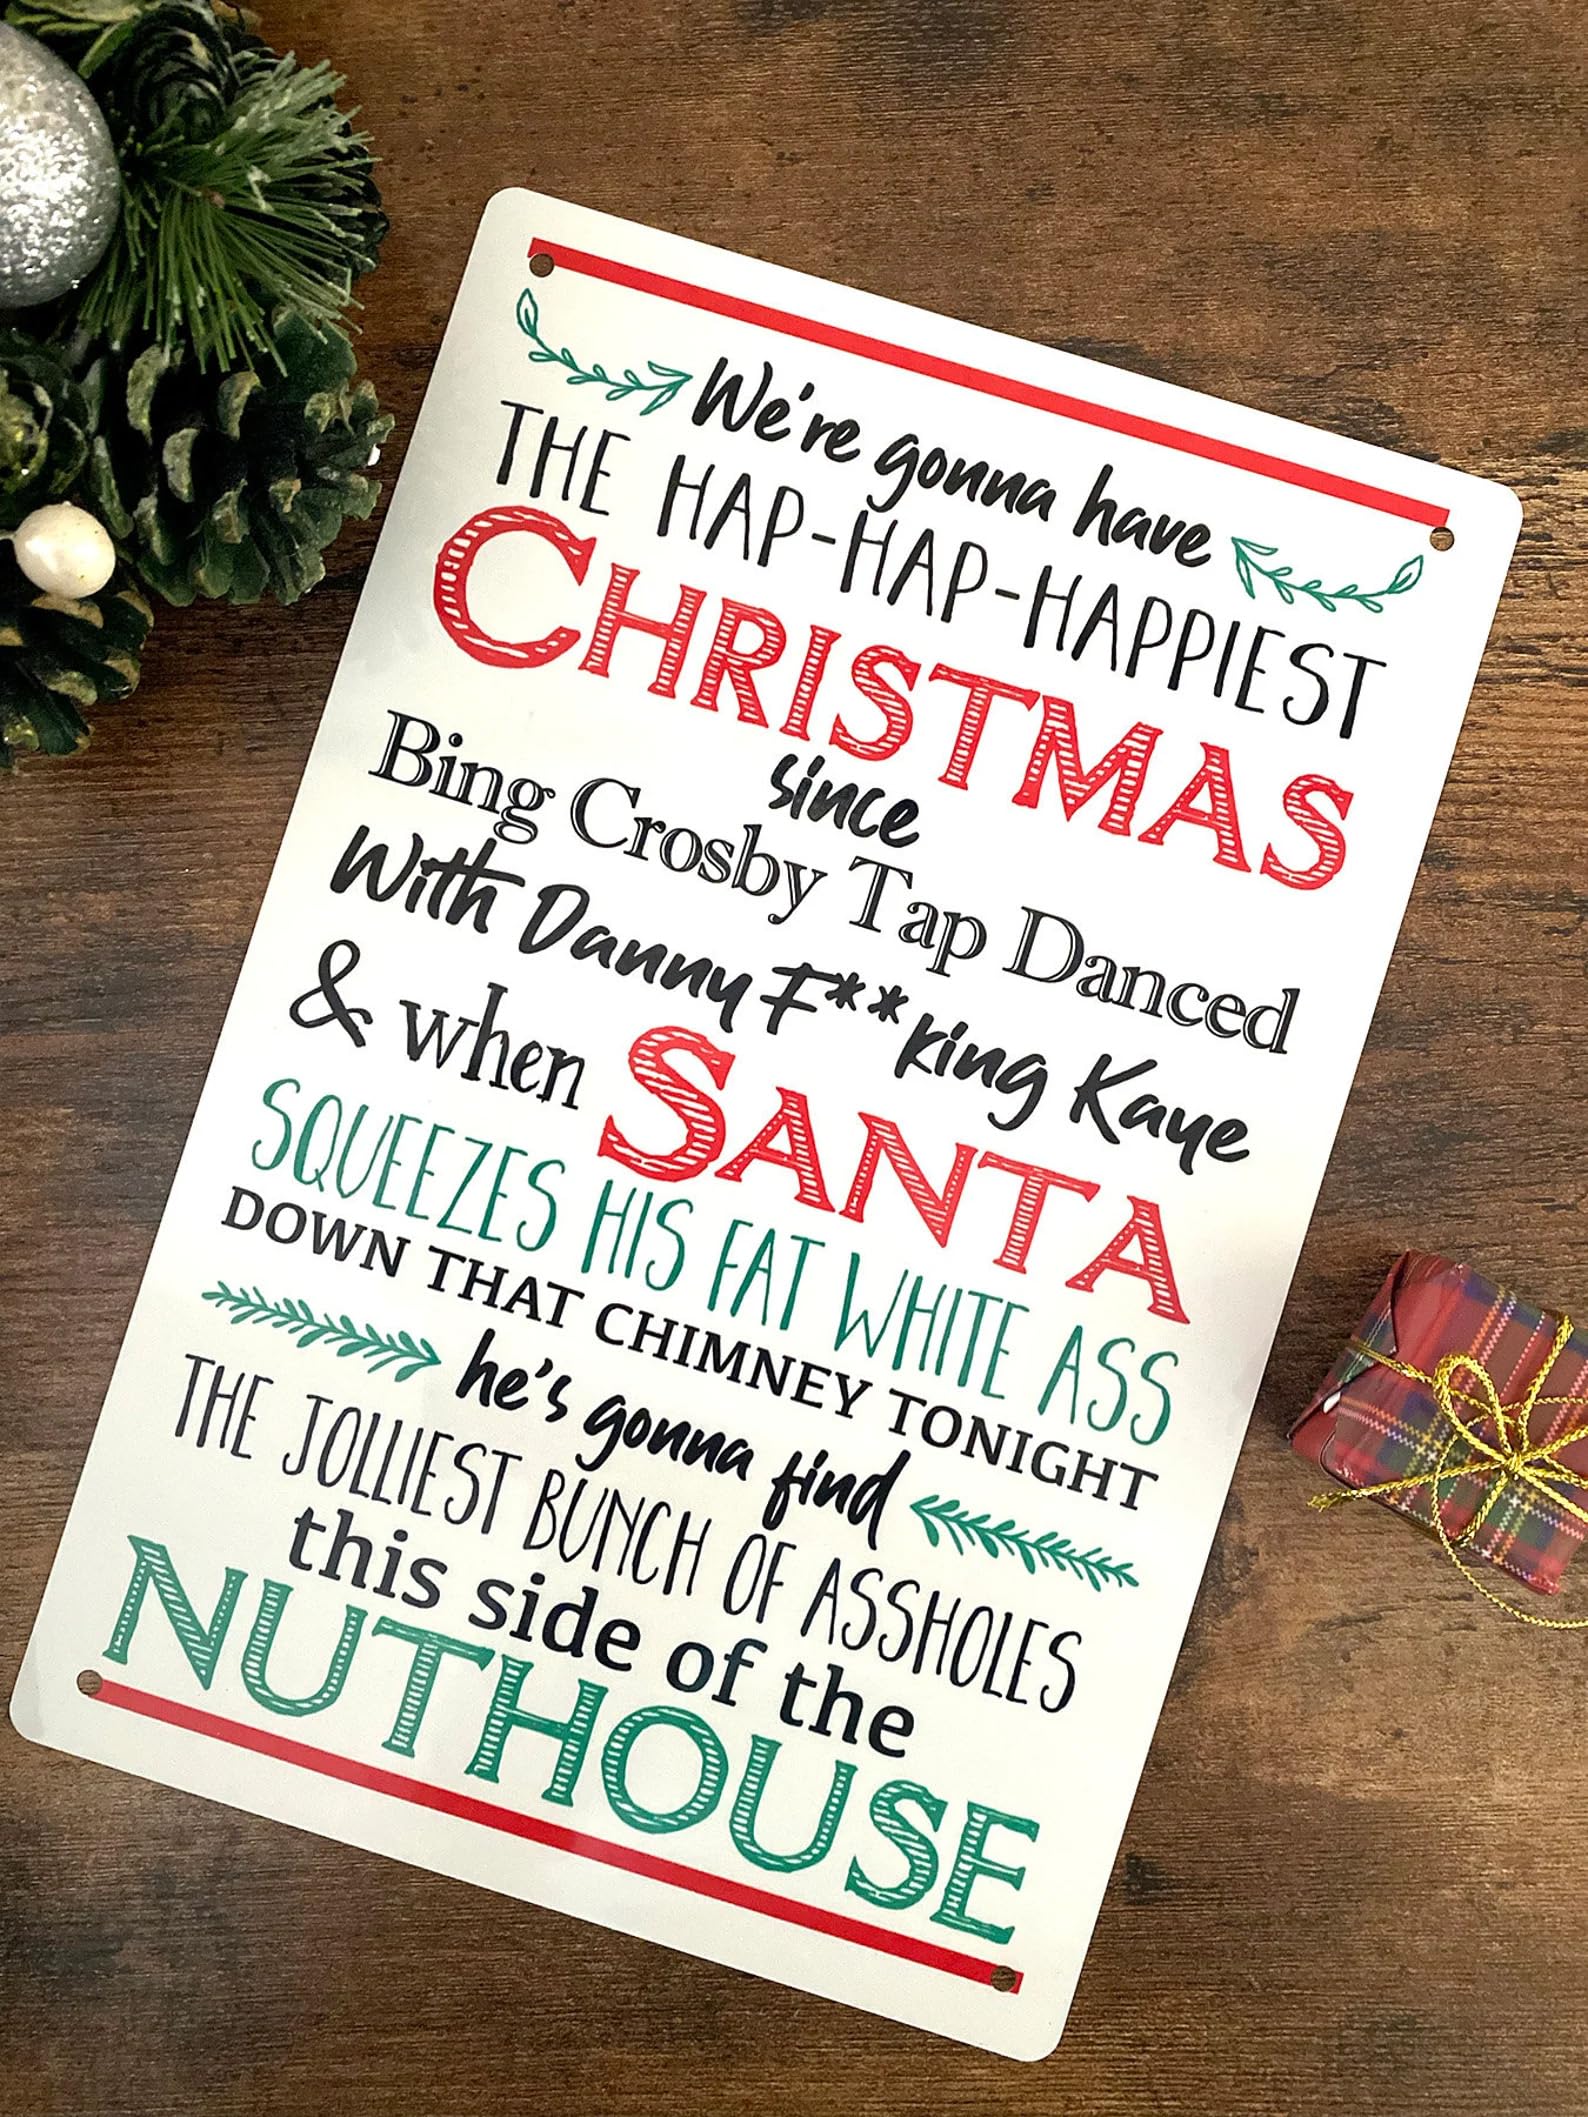 We're gonna have
THE HAP-HAP-HAPPIEST
CHRISTMAS
since
Bing Crosby Tap Danced
With Danny F**king Kaye
& when SANTA
SQUEEZES HIS FAT WHITE ASS
DOWN THAT CHIMNEY TONIGHT
he's gonna find
THE JOLLIEST BUNCH OF ASSHOLES
this side of the
NUTHOUSE